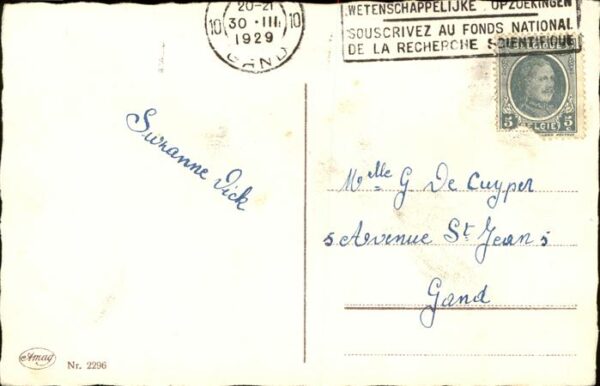 20-21
10 30 · III. 10
1929
GAND
WETENSCHAPPELIJKE . OPZOEKINGEN
SOUSCRIVEZ AU FONDS NATIONAL
DE LA RECHERCHE SCIENTIFIQUE
5 5
Suzanne Dick
Melle G De Cuyper
5 Avenue St Jean 5
Gand
Amag
Nr. 2296